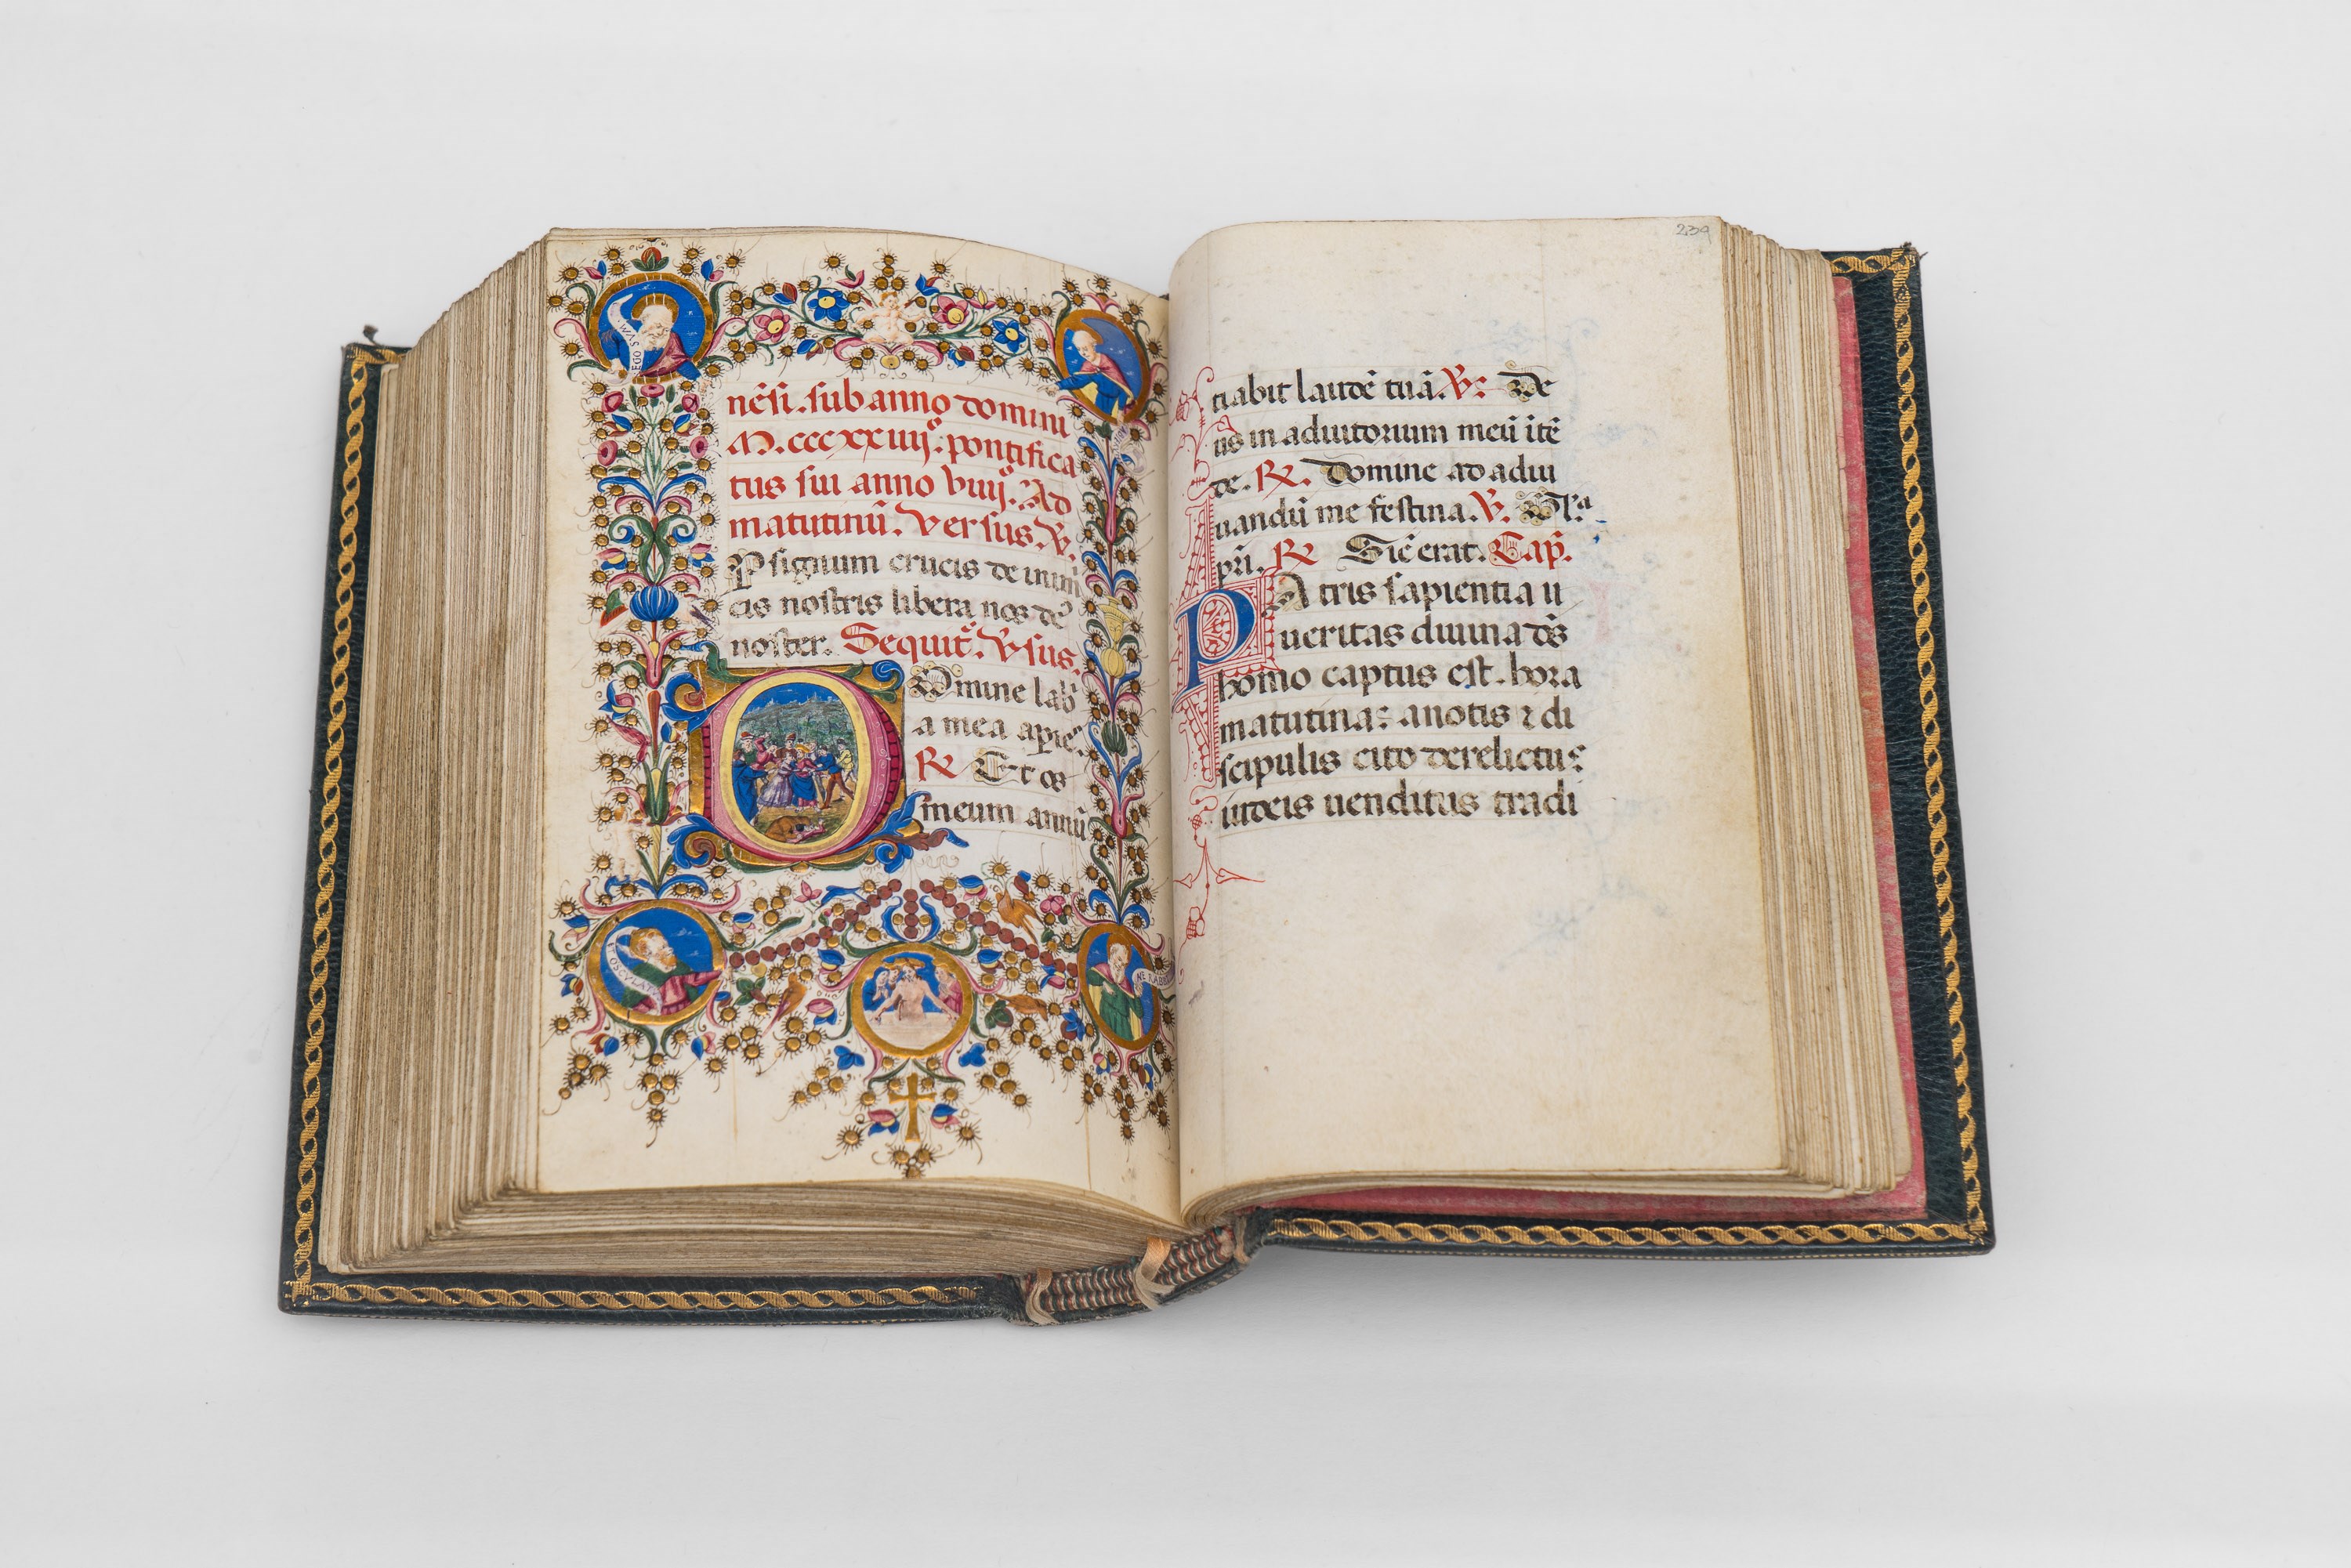 EGO SVM
nēsi. sub anno domini
M.cccxxiiij.° pontifica
tus sui anno viiij.° Ad
matutinū. versus. ℣.
P signum crucis de inimi
cis nostris libera nos de᾽
noster. Sequit᷑. ℣sus.
Domine lab
a mea apie᷑.
℟ Et os
meum annū
OSCVLATVR
NE RABBI
239
tiabit laudē tuā. ℣: De
us in adiutorium meū ītē
de. ℟. Domine ad adiu
uandū me festina. ℣. Gl'a
pri. ℟ Sic̄ erat. Cap̄.
PAtris sapientia u
ueritas diuina ds̄
homo captus est. hora
matutina: anotis ⁊ di
scipulis cito derelictus
iudeis uenditus tradi